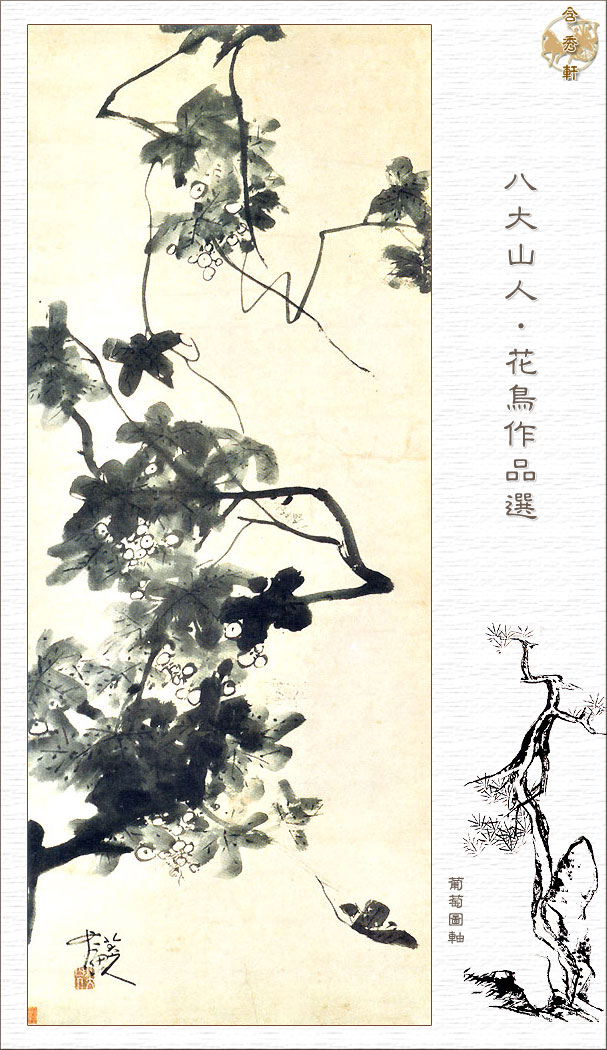 含秀軒
八大山人·花鳥作品選
葡萄圖軸
八大山人